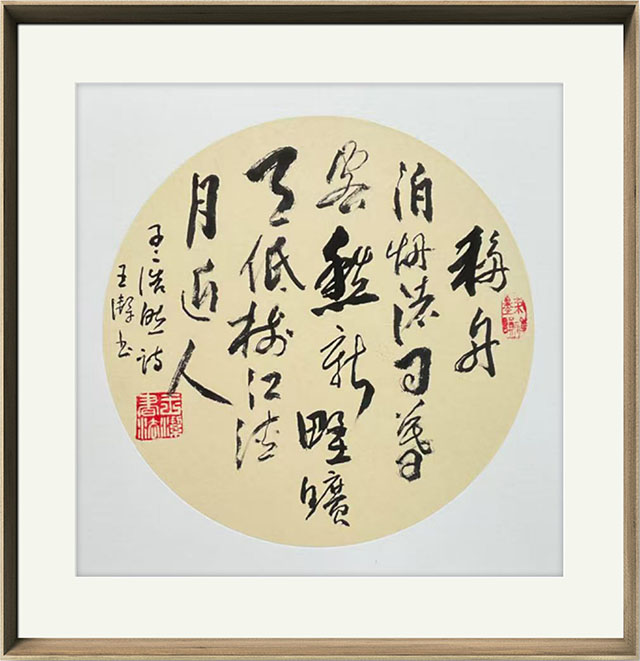 移舟
泊烟渚日暮
客愁新野曠
天低树江清
月近人
孟浩然诗
王书